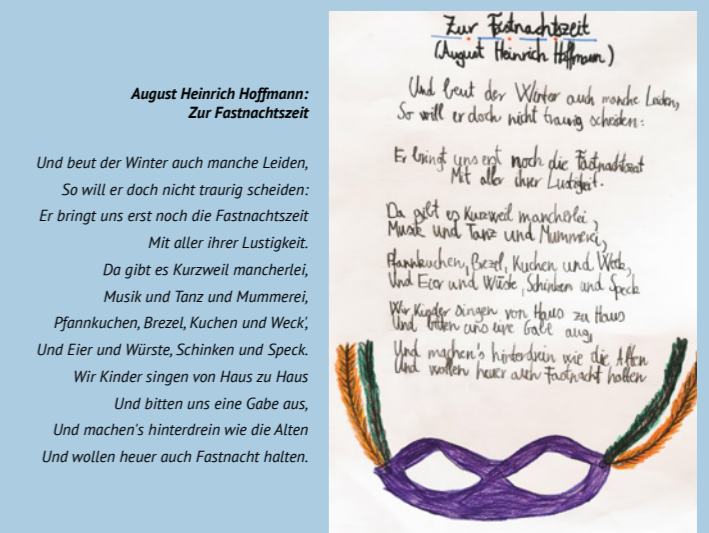 August Heinrich Hoffmann:
Zur Fastnachtszeit
Und beut der Winter auch manche Leiden,
So will er doch nicht traurig scheiden:
Er bringt uns erst noch die Fastnachtszeit
Mit aller ihrer Lustigkeit.
Da gibt es Kurzweil mancherlei,
Musik und Tanz und Mummerei,
Pfannkuchen, Brezel, Kuchen und Weck',
Und Eier und Würste, Schinken und Speck.
Wir Kinder singen von Haus zu Haus
Und bitten uns eine Gabe aus,
Und machen's hinterdrein wie die Alten
Und wollen heuer auch Fastnacht halten.
Zur Fastnachtszeit
(August Heinrich Hoffmann)
Und beut der Winter auch manche Leiden,
So will er doch nicht traurig scheiden:
Er bringt uns erst noch die Fastnachtszeit
Mit aller ihrer Lustigkeit.
Da gibt es Kurzweil mancherlei,
Musik und Tanz und Mummerei,
Pfannkuchen, Brezel, Kuchen und Weck,
Und Eier und Würste, Schinken und Speck
Wir Kinder singen von Haus zu Haus
Und bitten uns eine Gabe aus,
Und machen's hinterdrein wie die Alten
Und wollen heuer auch Fastnacht halten